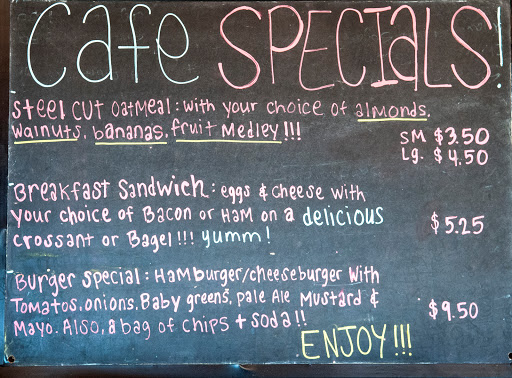 Cafe SPECIALS!
Steel cut oatmeal: with your choice of almonds,
walnuts, bananas, fruit Medley!!!
SM $3.50
Lg. $4.50
Breakfast Sandwich: eggs & cheese with
your choice of Bacon or Ham on a delicious
crossant or Bagel!!! yumm!
$5.25
Burger Special: Hamburger/cheeseburger with
Tomatos, onions, Baby greens, pale Ale Mustard &
Mayo. Also, a bag of chips + soda!!
$9.50
ENJOY!!!